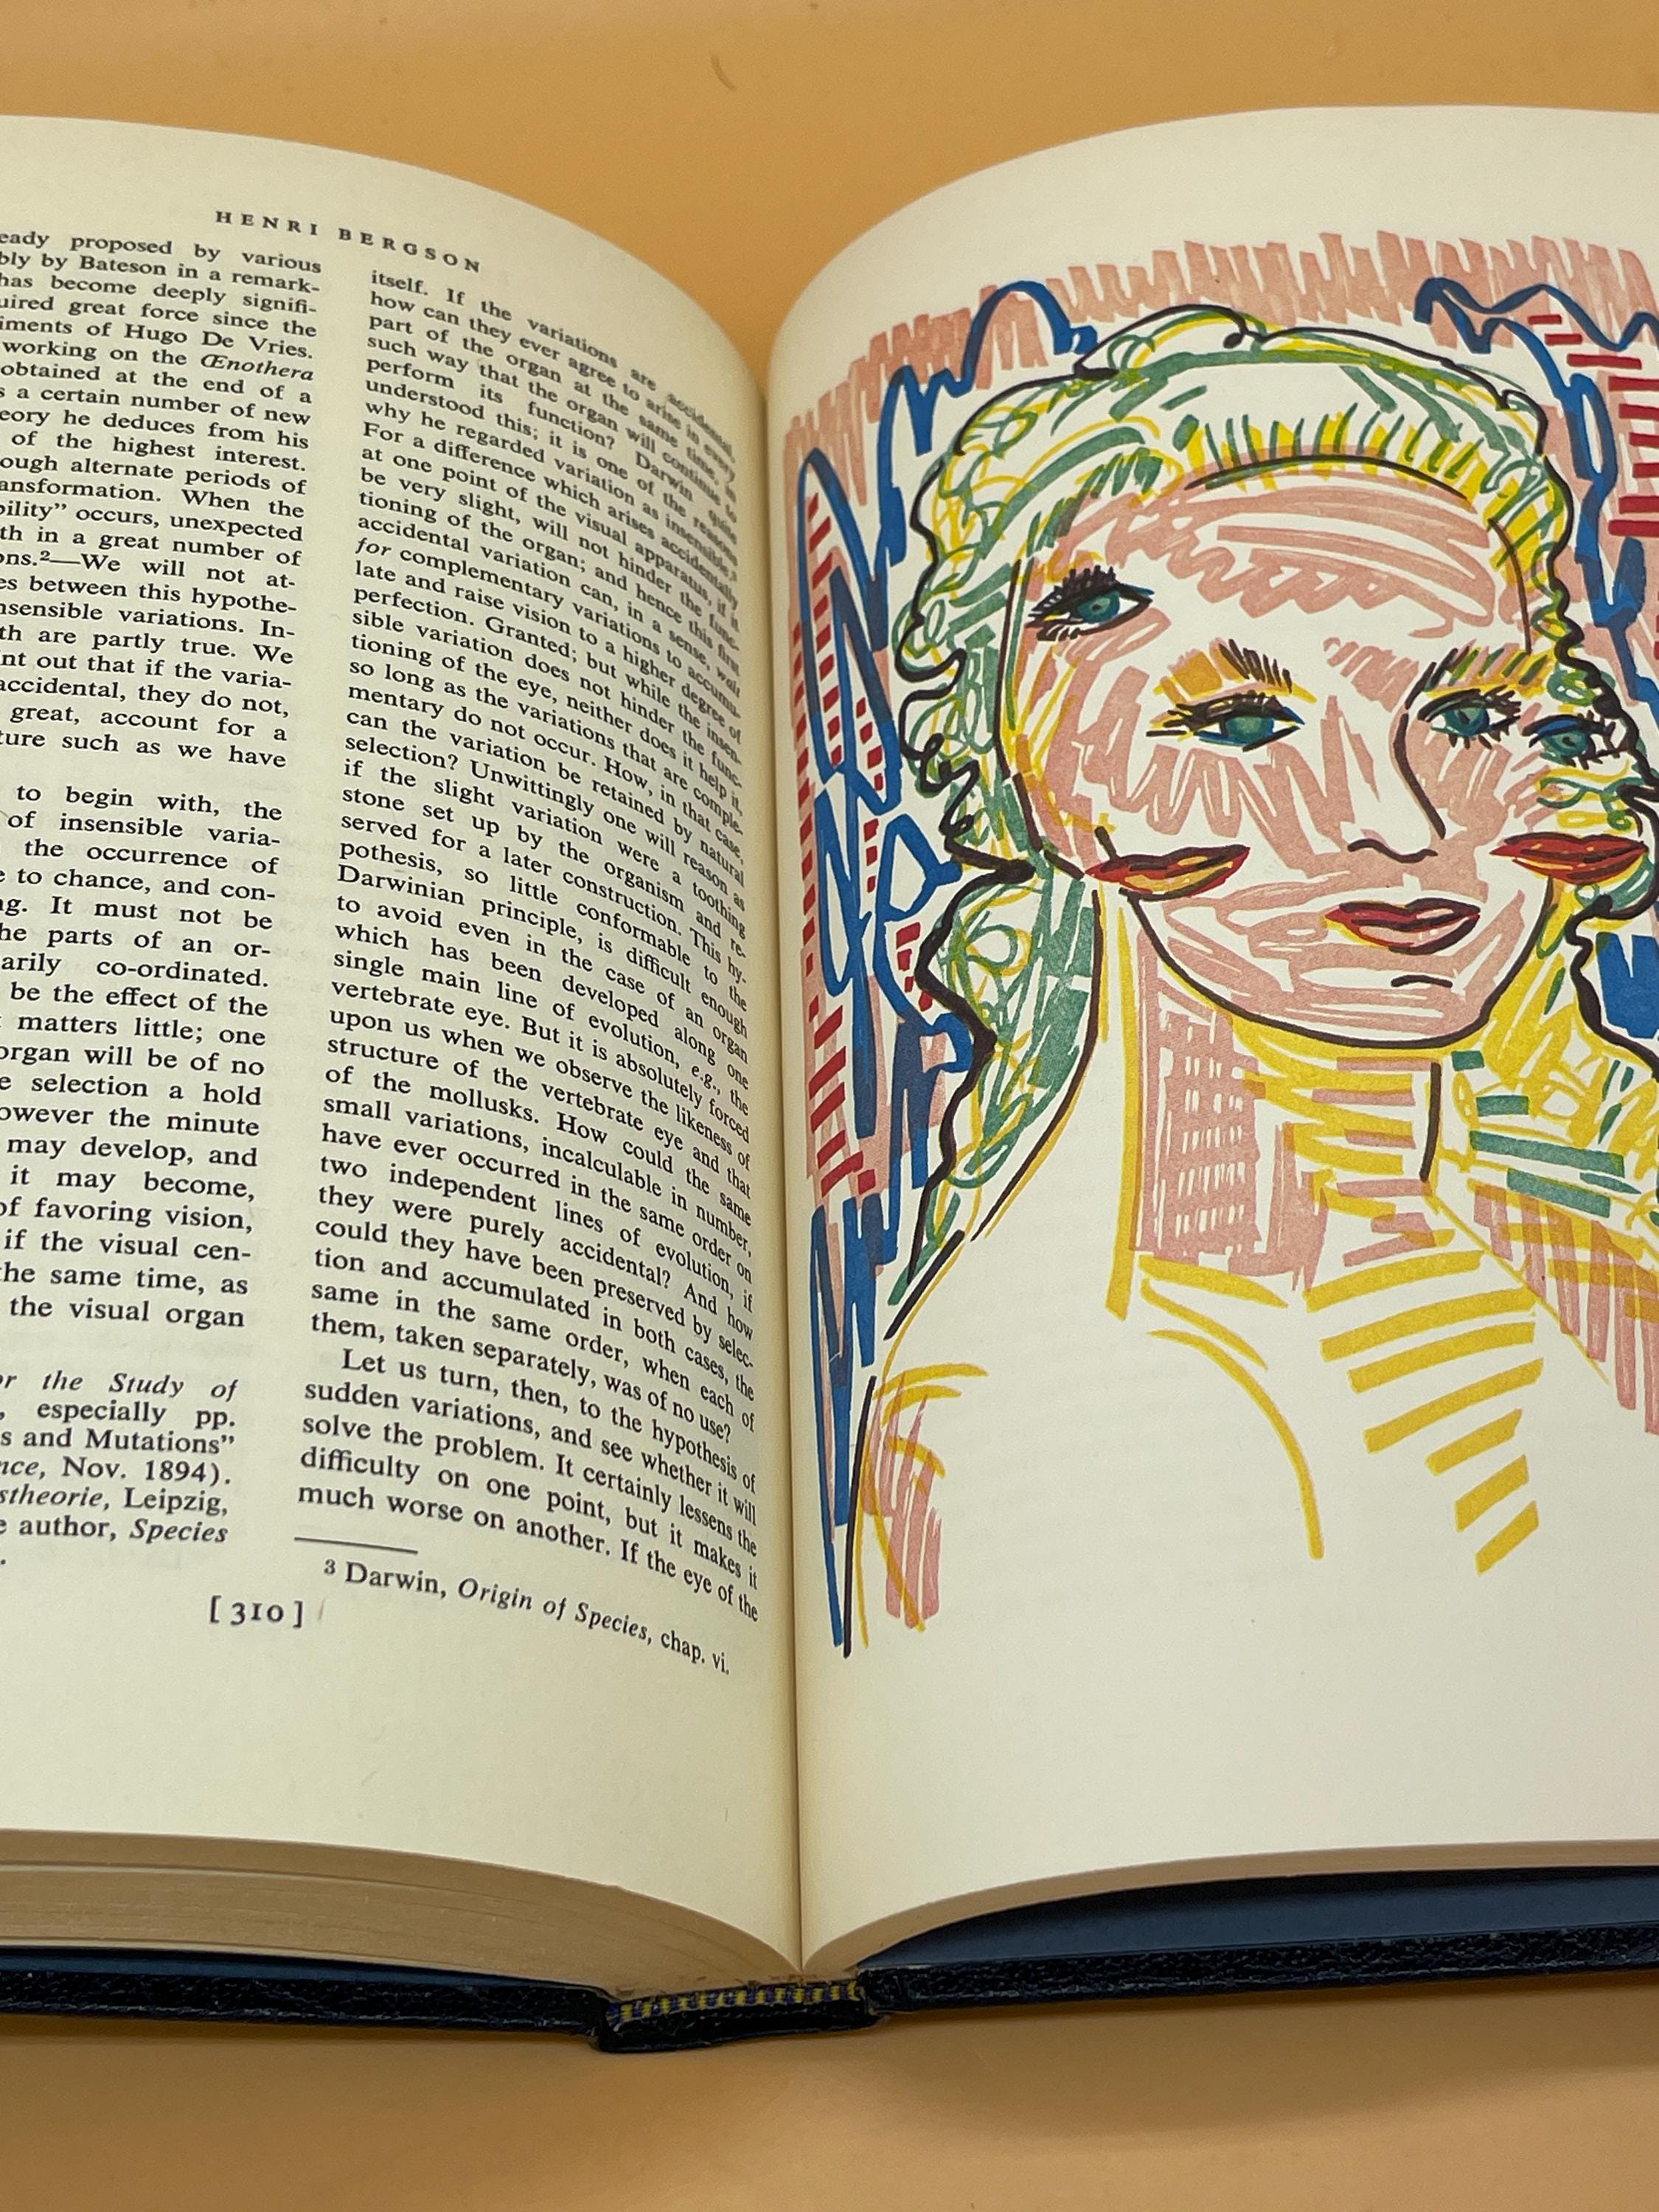 HENRI BERGSON
eady proposed by various
bly by Bateson in a remark-
has become deeply signifi-
uired great force since the
iments of Hugo De Vries.
working on the Œnothera
obtained at the end of a
s a certain number of new
eory he deduces from his
of the highest interest.
ough alternate periods of
ansformation. When the
bility” occurs, unexpected
th in a great number of
ons.²—We will not at-
es between this hypothe-
nsensible variations. In-
th are partly true. We
nt out that if the varia-
accidental, they do not,
great, account for a
ture such as we have
to begin with, the
of insensible varia-
the occurrence of
e to chance, and con-
ng. It must not be
he parts of an or-
arily co-ordinated.
be the effect of the
matters little; one
organ will be of no
e selection a hold
owever the minute
may develop, and
it may become,
of favoring vision,
if the visual cen-
he same time, as
the visual organ
or the Study of
, especially pp.
s and Mutations”
nce, Nov. 1894).
stheorie, Leipzig,
e author, Species
.
itself. If the variations are accidental,
how can they ever agree to arise in every
part of the organ at the same time, in
such way that the organ will continue to
perform its function? Darwin quite
understood this; it is one of the reasons
why he regarded variation as insensible.³
For a difference which arises accidentally
at one point of the visual apparatus, if it
be very slight, will not hinder the func-
tioning of the organ; and hence this first
accidental variation can, in a sense, wait
for complementary variations to accumu-
late and raise vision to a higher degree of
perfection. Granted; but while the insen-
sible variation does not hinder the func-
tioning of the eye, neither does it help it,
so long as the variations that are comple-
mentary do not occur. How, in that case,
can the variation be retained by natural
selection? Unwittingly one will reason as
if the slight variation were a toothing
stone set up by the organism and re-
served for a later construction. This hy-
pothesis, so little conformable to the
Darwinian principle, is difficult enough
to avoid even in the case of an organ
which has been developed along one
single main line of evolution, e.g., the
vertebrate eye. But it is absolutely forced
upon us when we observe the likeness of
structure of the vertebrate eye and that
of the mollusks. How could the same
small variations, incalculable in number,
have ever occurred in the same order on
two independent lines of evolution, if
they were purely accidental? And how
could they have been preserved by selec-
tion and accumulated in both cases, the
same in the same order, when each of
them, taken separately, was of no use?
Let us turn, then, to the hypothesis of
sudden variations, and see whether it will
solve the problem. It certainly lessens the
difficulty on one point, but it makes it
much worse on another. If the eye of the
³ Darwin, Origin of Species, chap. vi.
[ 310 ]